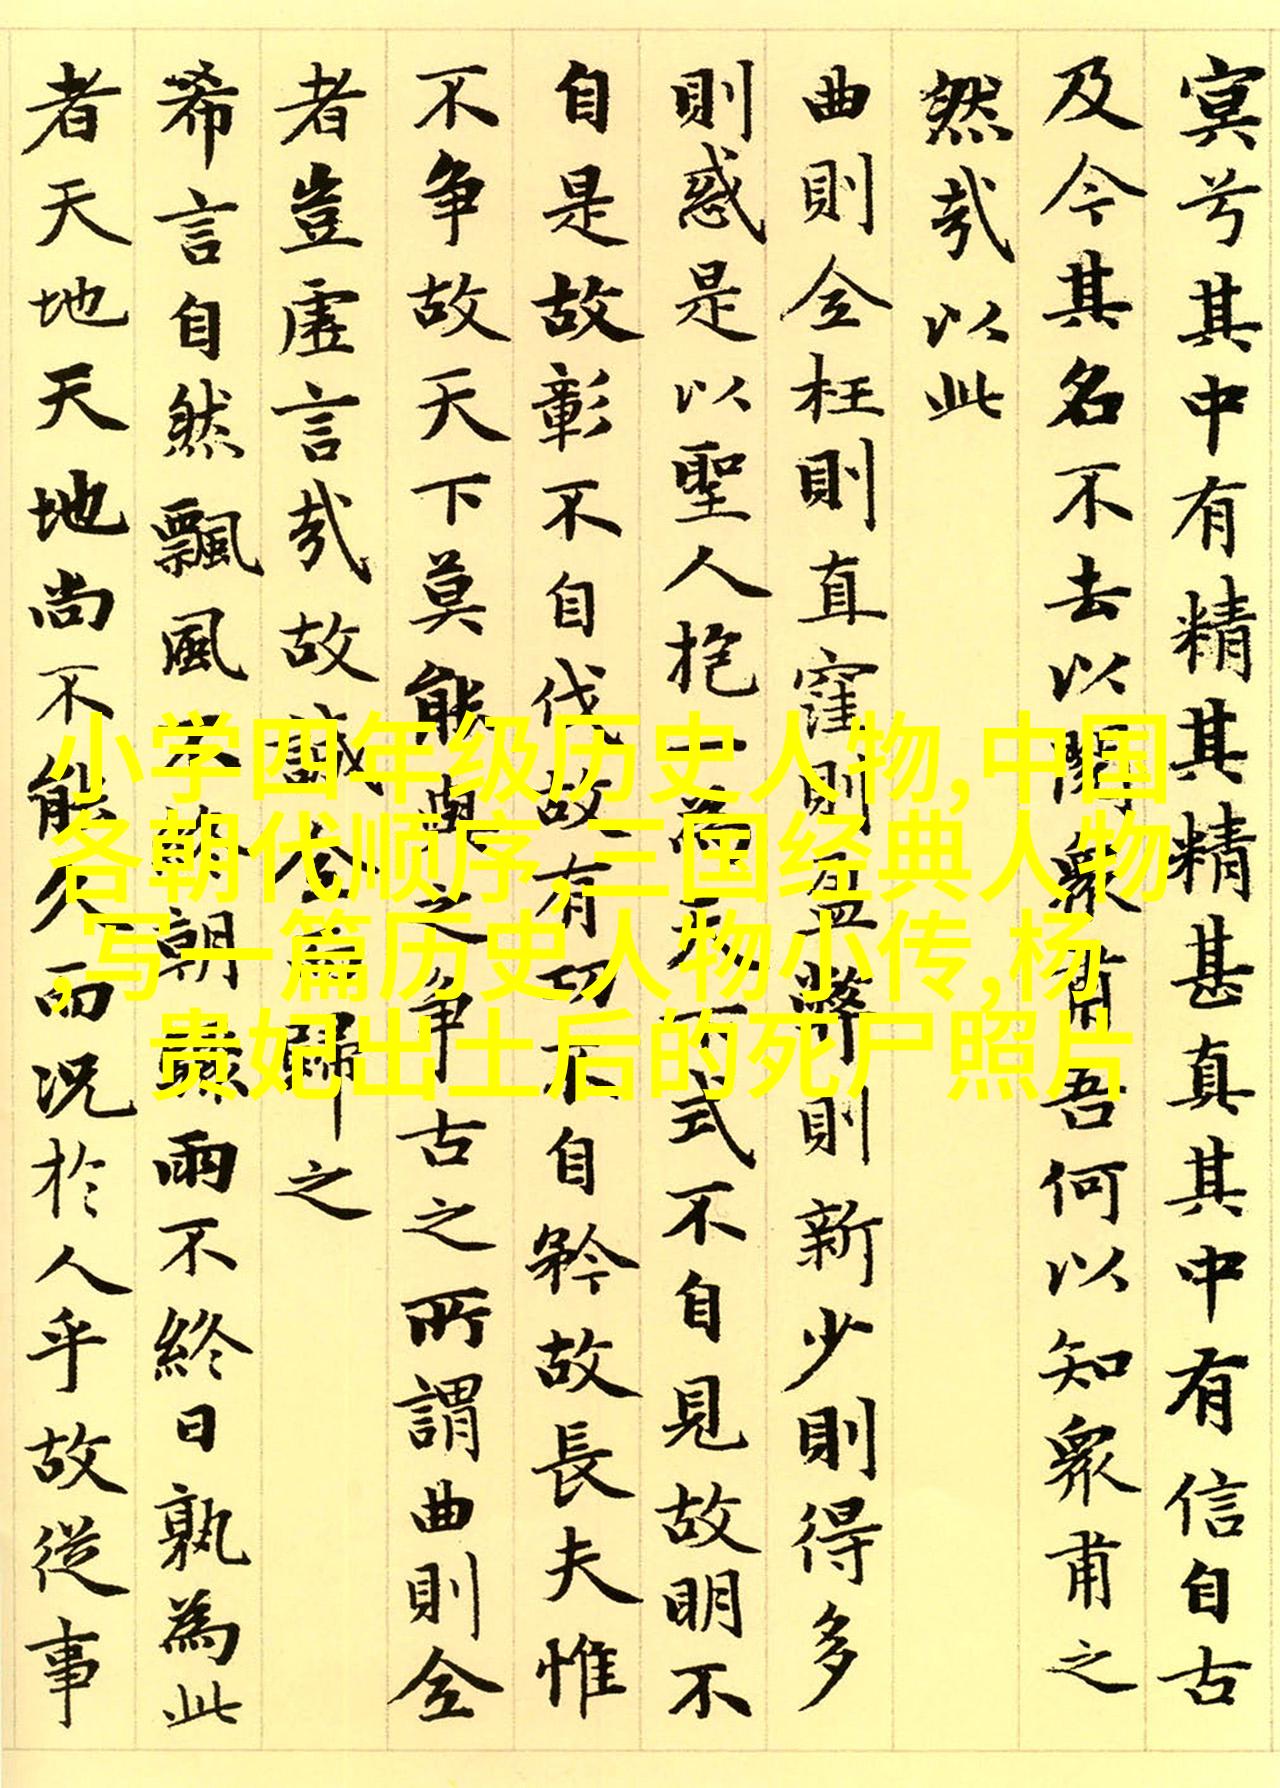 冥兮其中有精其精甚真其中有信自古
及今其名不去以閱衆甫吾何以知衆甫之
然哉以此
曲則全枉則直窪則盈弊則新少則得多
則惑是以聖人抱一為天下式不自見故明不
自是故彰不自伐故有功不自矜故長夫惟
不争故天下莫能與之争古之所謂曲則全
者豈虛言哉故誠全而歸之
希言自然飄風不終朝驟雨不終日孰為此
者天地天地尚不能久而况於人乎故從事
小学四年级历史人物,中国
各朝代顺序,三国经典人物
,写一篇历史人物小传,杨
贵妃出土后的死尸照片